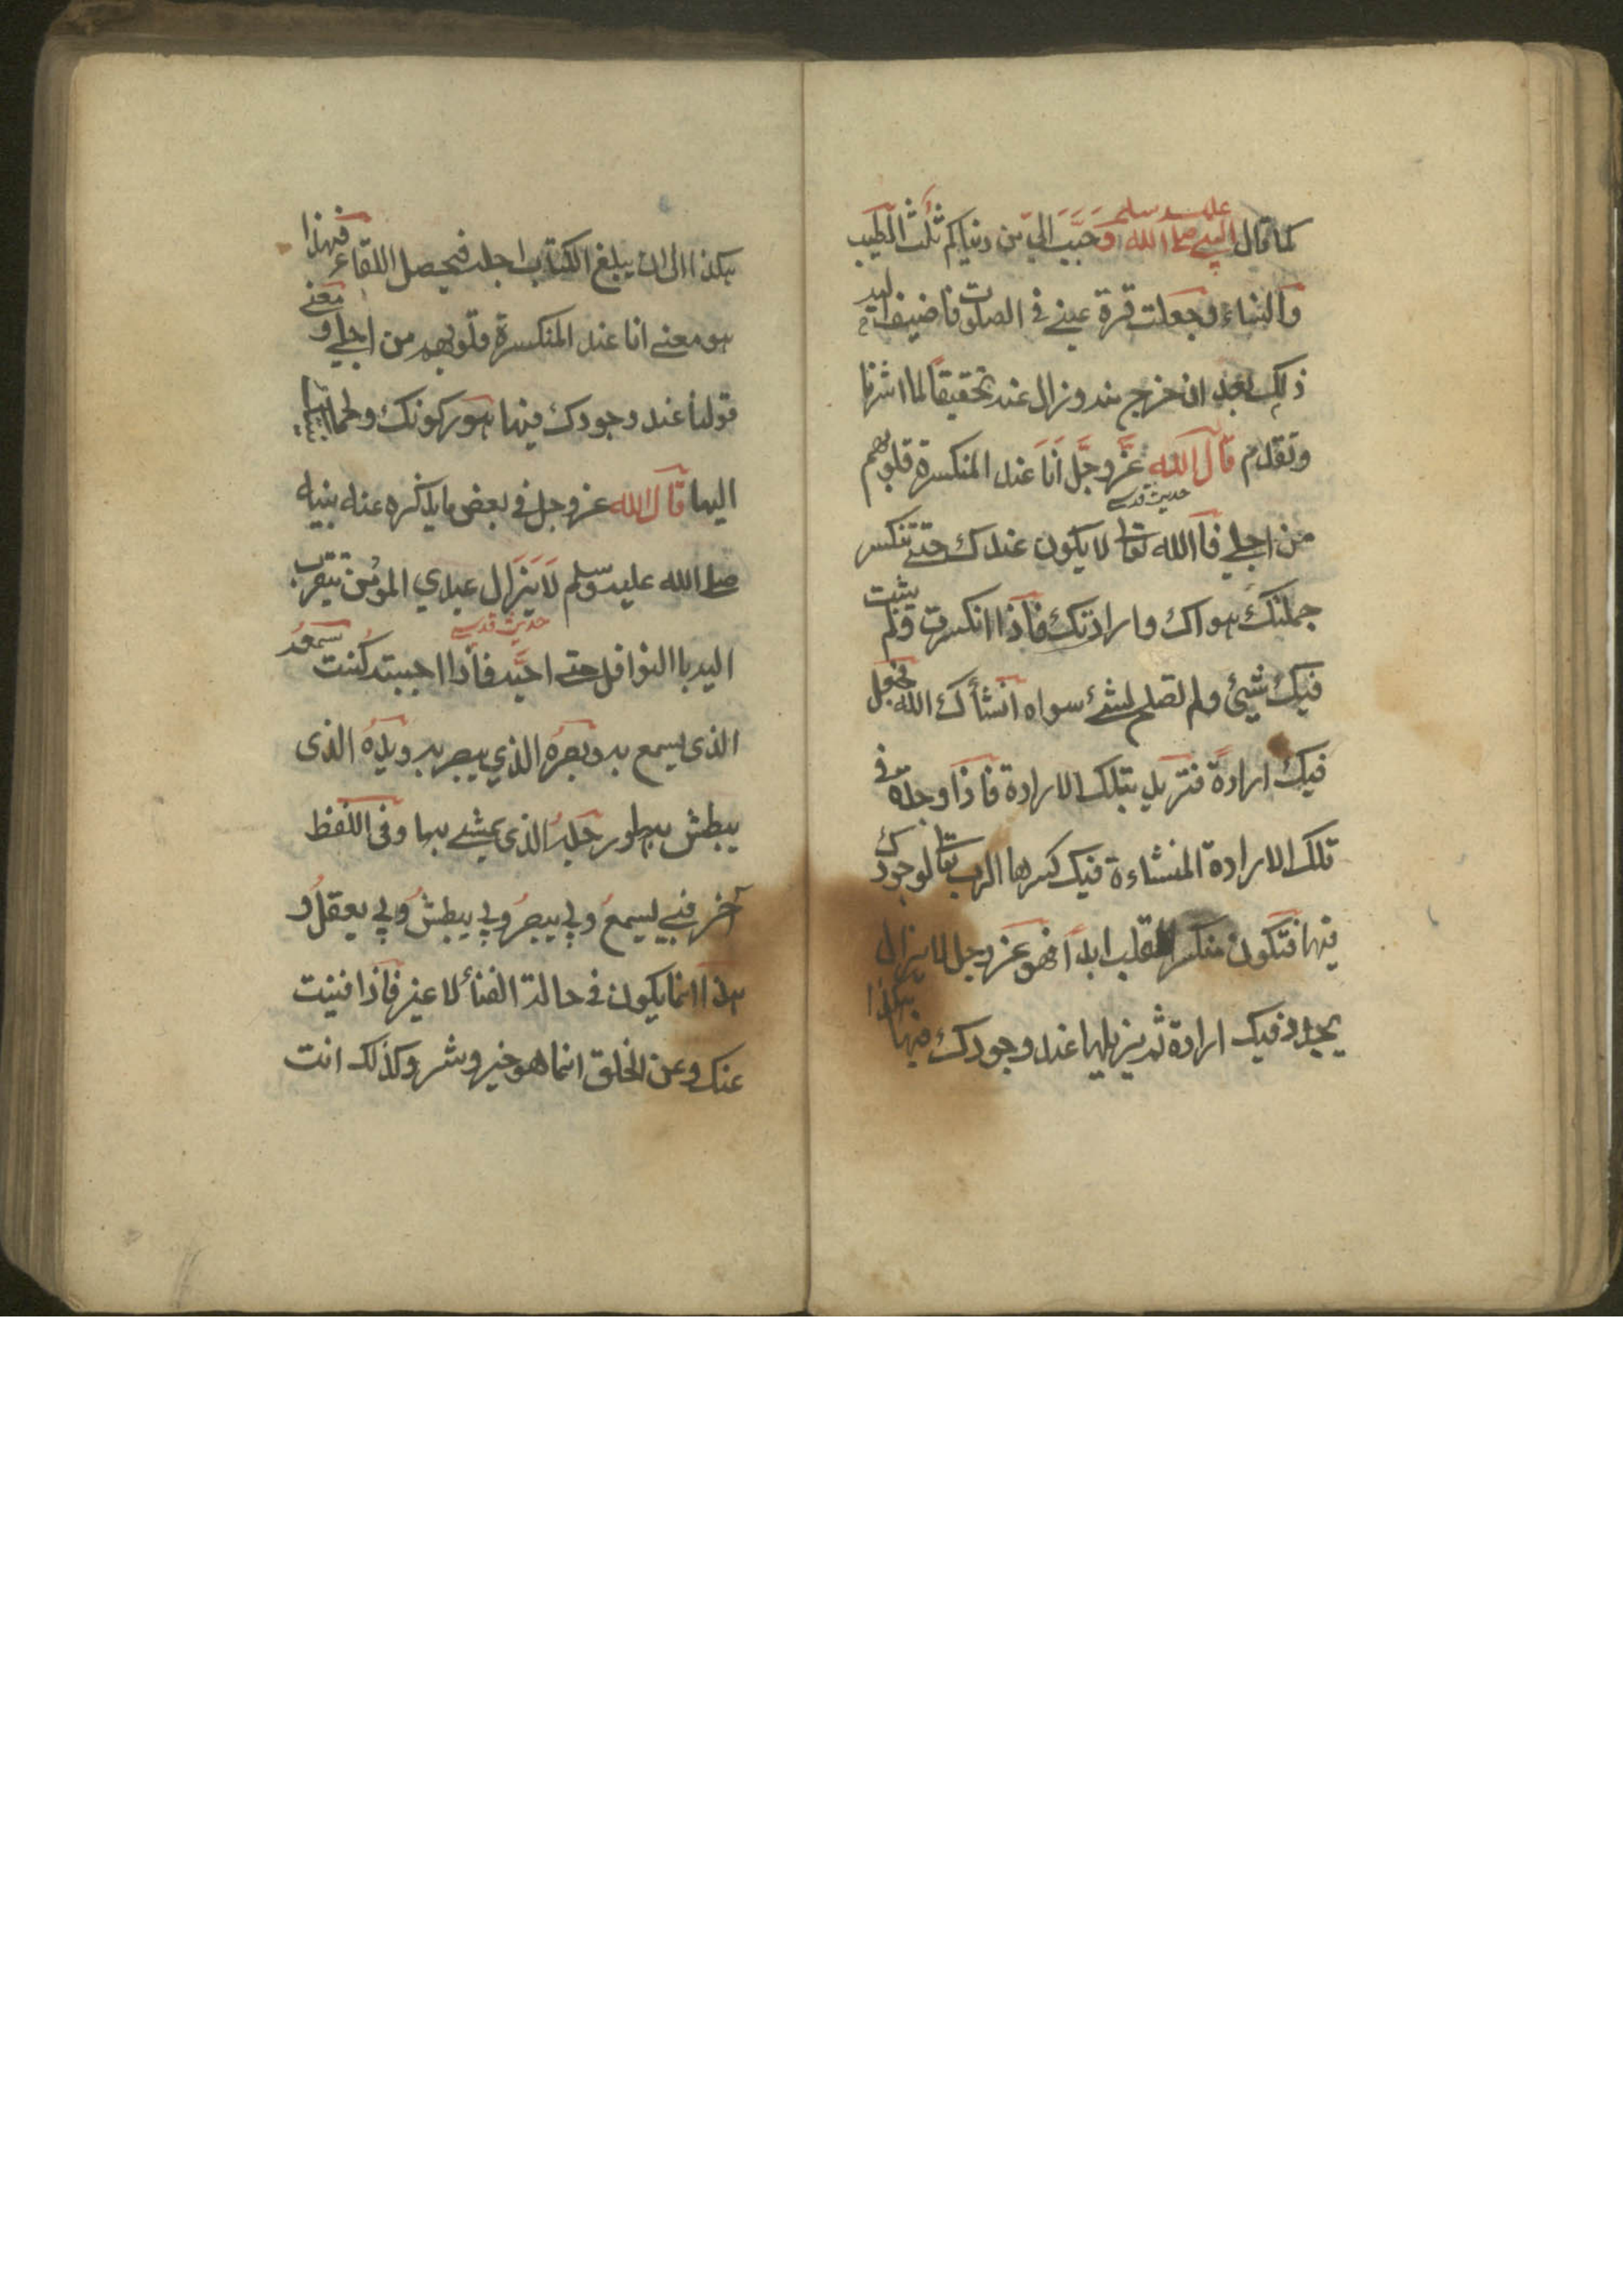 كما قال النبي صلى الله عليه وسلم وَحُبِّبَ اليّ من دنياكم ثلث الطيب
والنساء وجعلت قرة عيني في الصلوت فاضيف اليه
ذلك بعد ان خرج منه وزال عنه تحقيقاً لما اشرنا
وتقدم قال الله عزَّ وجَلَّ اَنَا عند المنكسرة قلوبهم
حديث قدسي
من اجلي فا الله تعالى لا يكون عندك حتى تنكسر
جملتك هواك وارادتك فاذا انكسرت ولم يثبت
فيك شيئ ولم تصلح لشئ سواه انشأك الله فجعل
فيك ارادة فتريد بتلك الارادة فاذا وجدت في
تلك الارادة المنشاءة فيك كسرها الرب تعالى لوجودك
فيها فتكون منكسر القلب ابداً فهو عز وجل لا يزال
يجدد فيك ارادة ثم يزيلها عند وجودك فيها هكذا
هكذا الى ان يبلغ الكتاب اجله فيحصل اللقاء فهذا
هو معنى انا عند المنكسرة قلوبهم من اجلي و معنى
قولنا عند وجودك فيها هو ركونك و
اليها قال الله عز وجل في بعض ما يذكره عنه نبيه
صلى الله عليه وسلم لَا يَزَال عبدي المؤمن يتقرب
حديث قدسي
اليه باالنوافل حتى احبّه فاذا احببته كُنت سمعه
الذى يسمع به وبصره الذي يبصر به ويده الذى
يبطش بها ورجله الذى يمشى بها وفى اللفظ
آخر فبي يسمع وبي يبصر وبي يبطش وبي يعقل و
هذا انما يكون في حالة الفنأ لا غير فاذا فنيت
عنك وعن الخلق انما هو خير وشر وكذلك انت